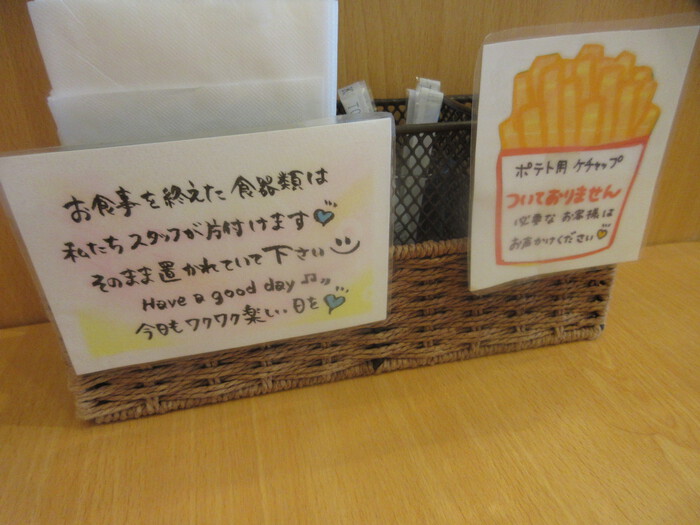 お食事を終えた食器類は
私たちスタッフが片付けます
そのまま置かれていて下さい
Have a good day
今日もワクワク楽しい日を
ポテト用ケチャップ
ついておりません
必要なお客様は
お声かけください